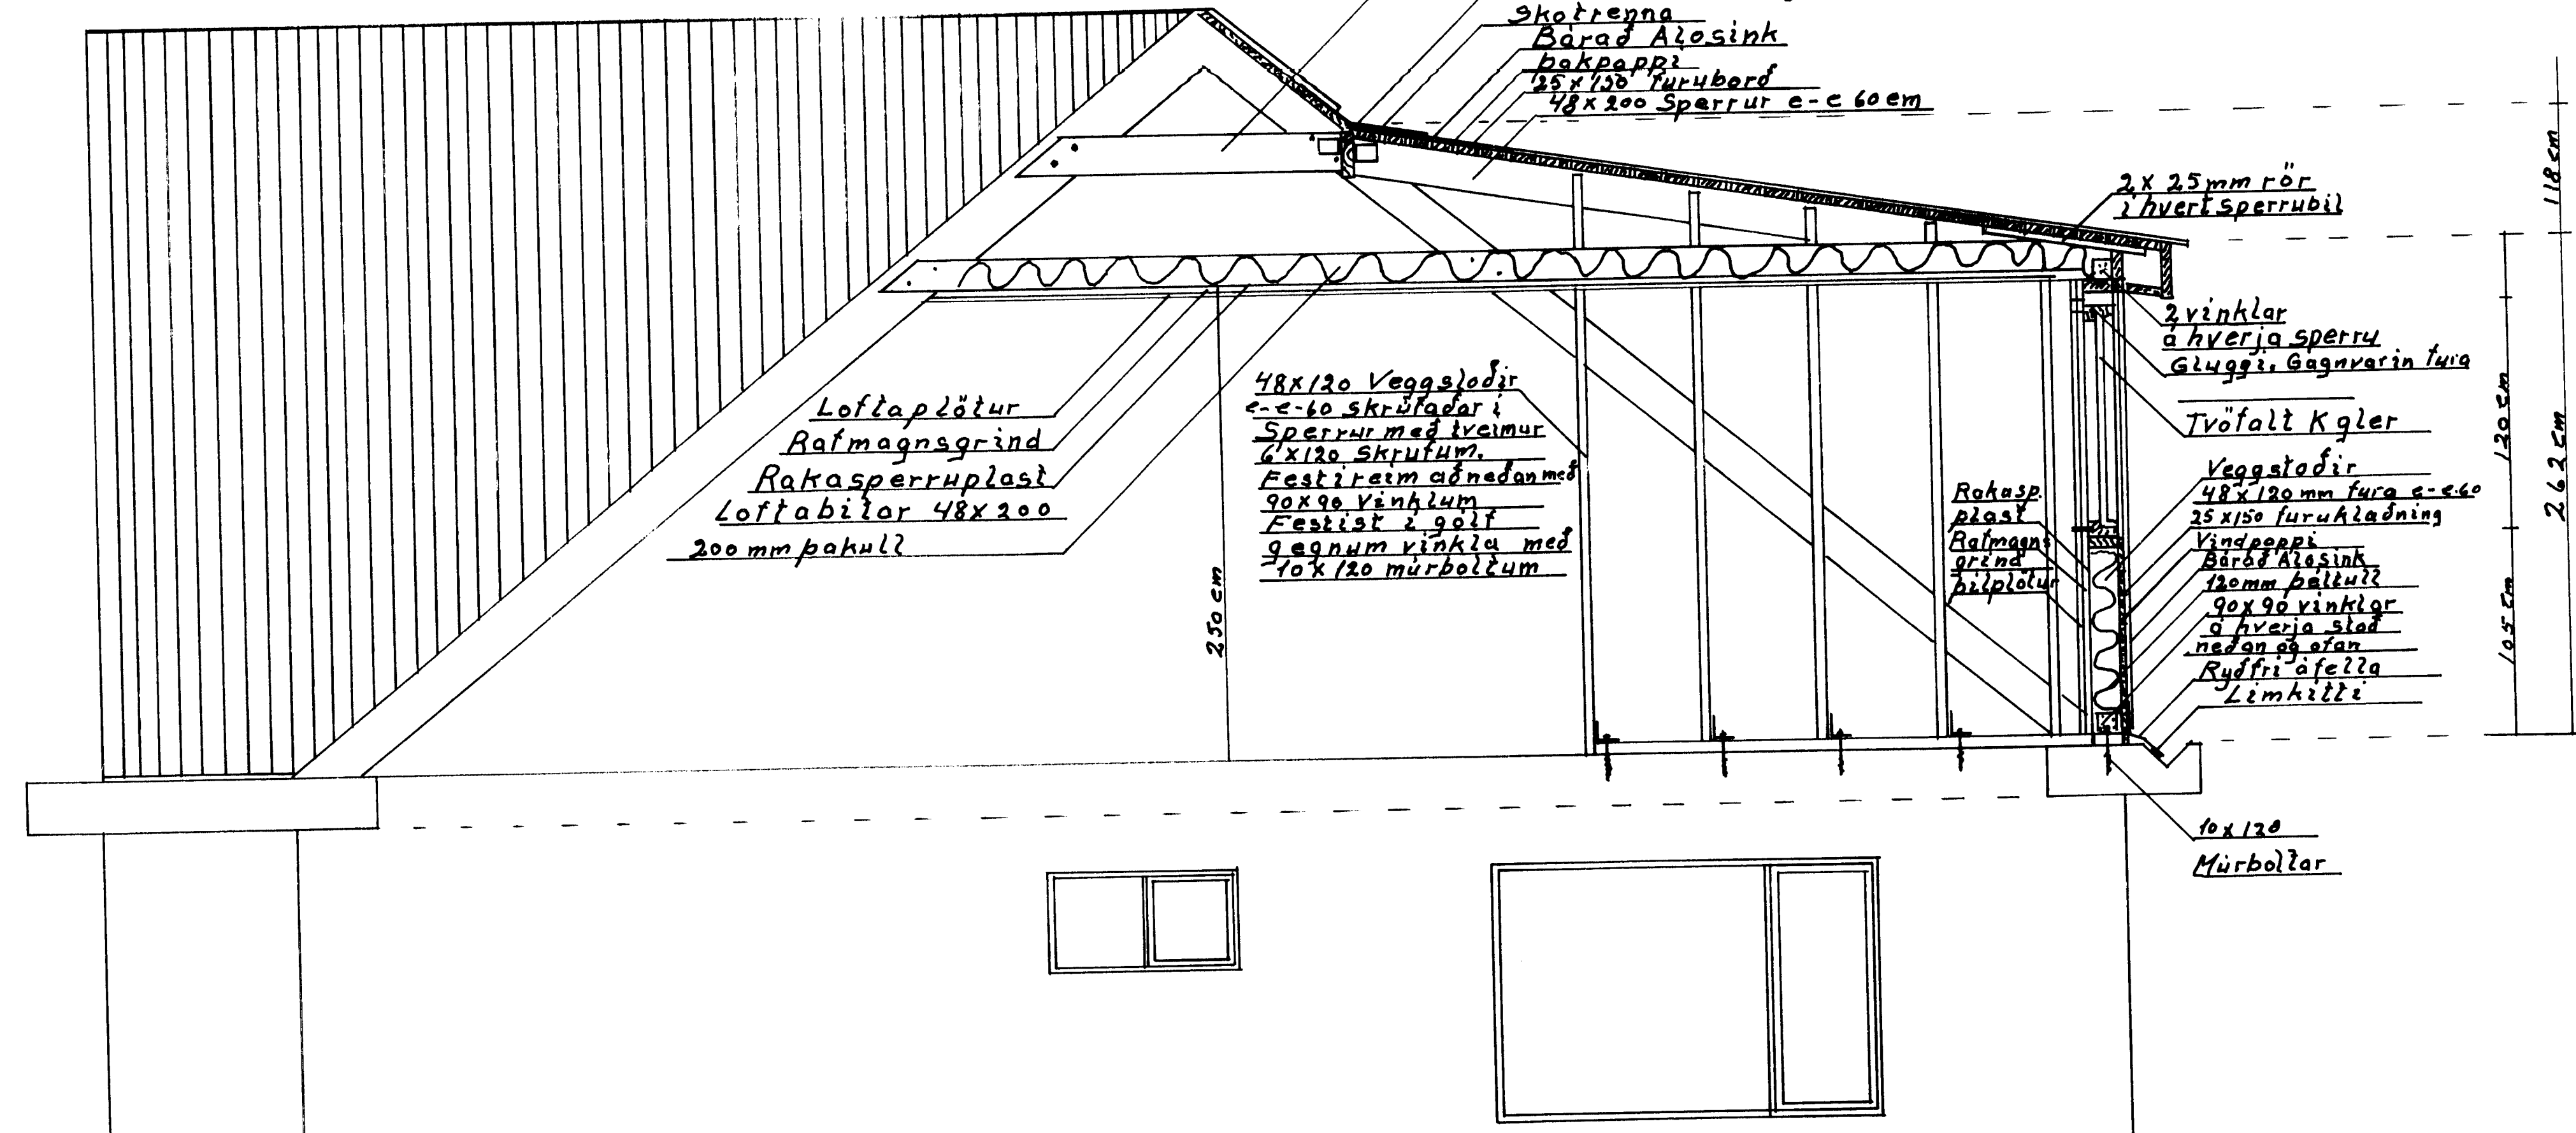 Skotrenna
Bárað Alosink
þakpappi
25 x 150 furuborð
48 x 200 Sperrur c-c 60 cm
118 cm
2 x 25 mm rör
í hvert sperrubil
2 vinklar
á hverja sperru
Gluggi, Gagnvarin fura
Tvöfalt K gler
120 cm
262 cm
105 cm
Loftaplötur
Rafmagnsgrind
Rakasperruplast
Loftabitar 48 x 200
200 mm þakull
250 cm
48 x 120 Veggstoðir
c-c-60 skrúfaðar í
Sperrur með tveimur
6 x 120 skrúfum.
Festi reim að neðan með
90 x 90 vinklum
Festist í gólf
gegnum vinkla með
10 x 120 múrboltum
Rakasp.
plast
Rafmagns
grind
þilplötur
Veggstoðir
48 x 120 mm fura c-c-60
25 x 150 furuklæðning
Vindpappi
Bárað Alosink
120 mm þéttull
90 x 90 vinklar
á hverja stoð
neðan og ofan
Ryðfrí áfella
Límkítti
10 x 120
Múrboltar